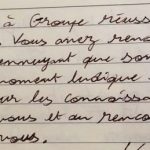 à Groupe réuss
. Vous avez ren
ennuyant que son
moment ludique
ur les connaiss
vous et au renco
vous.